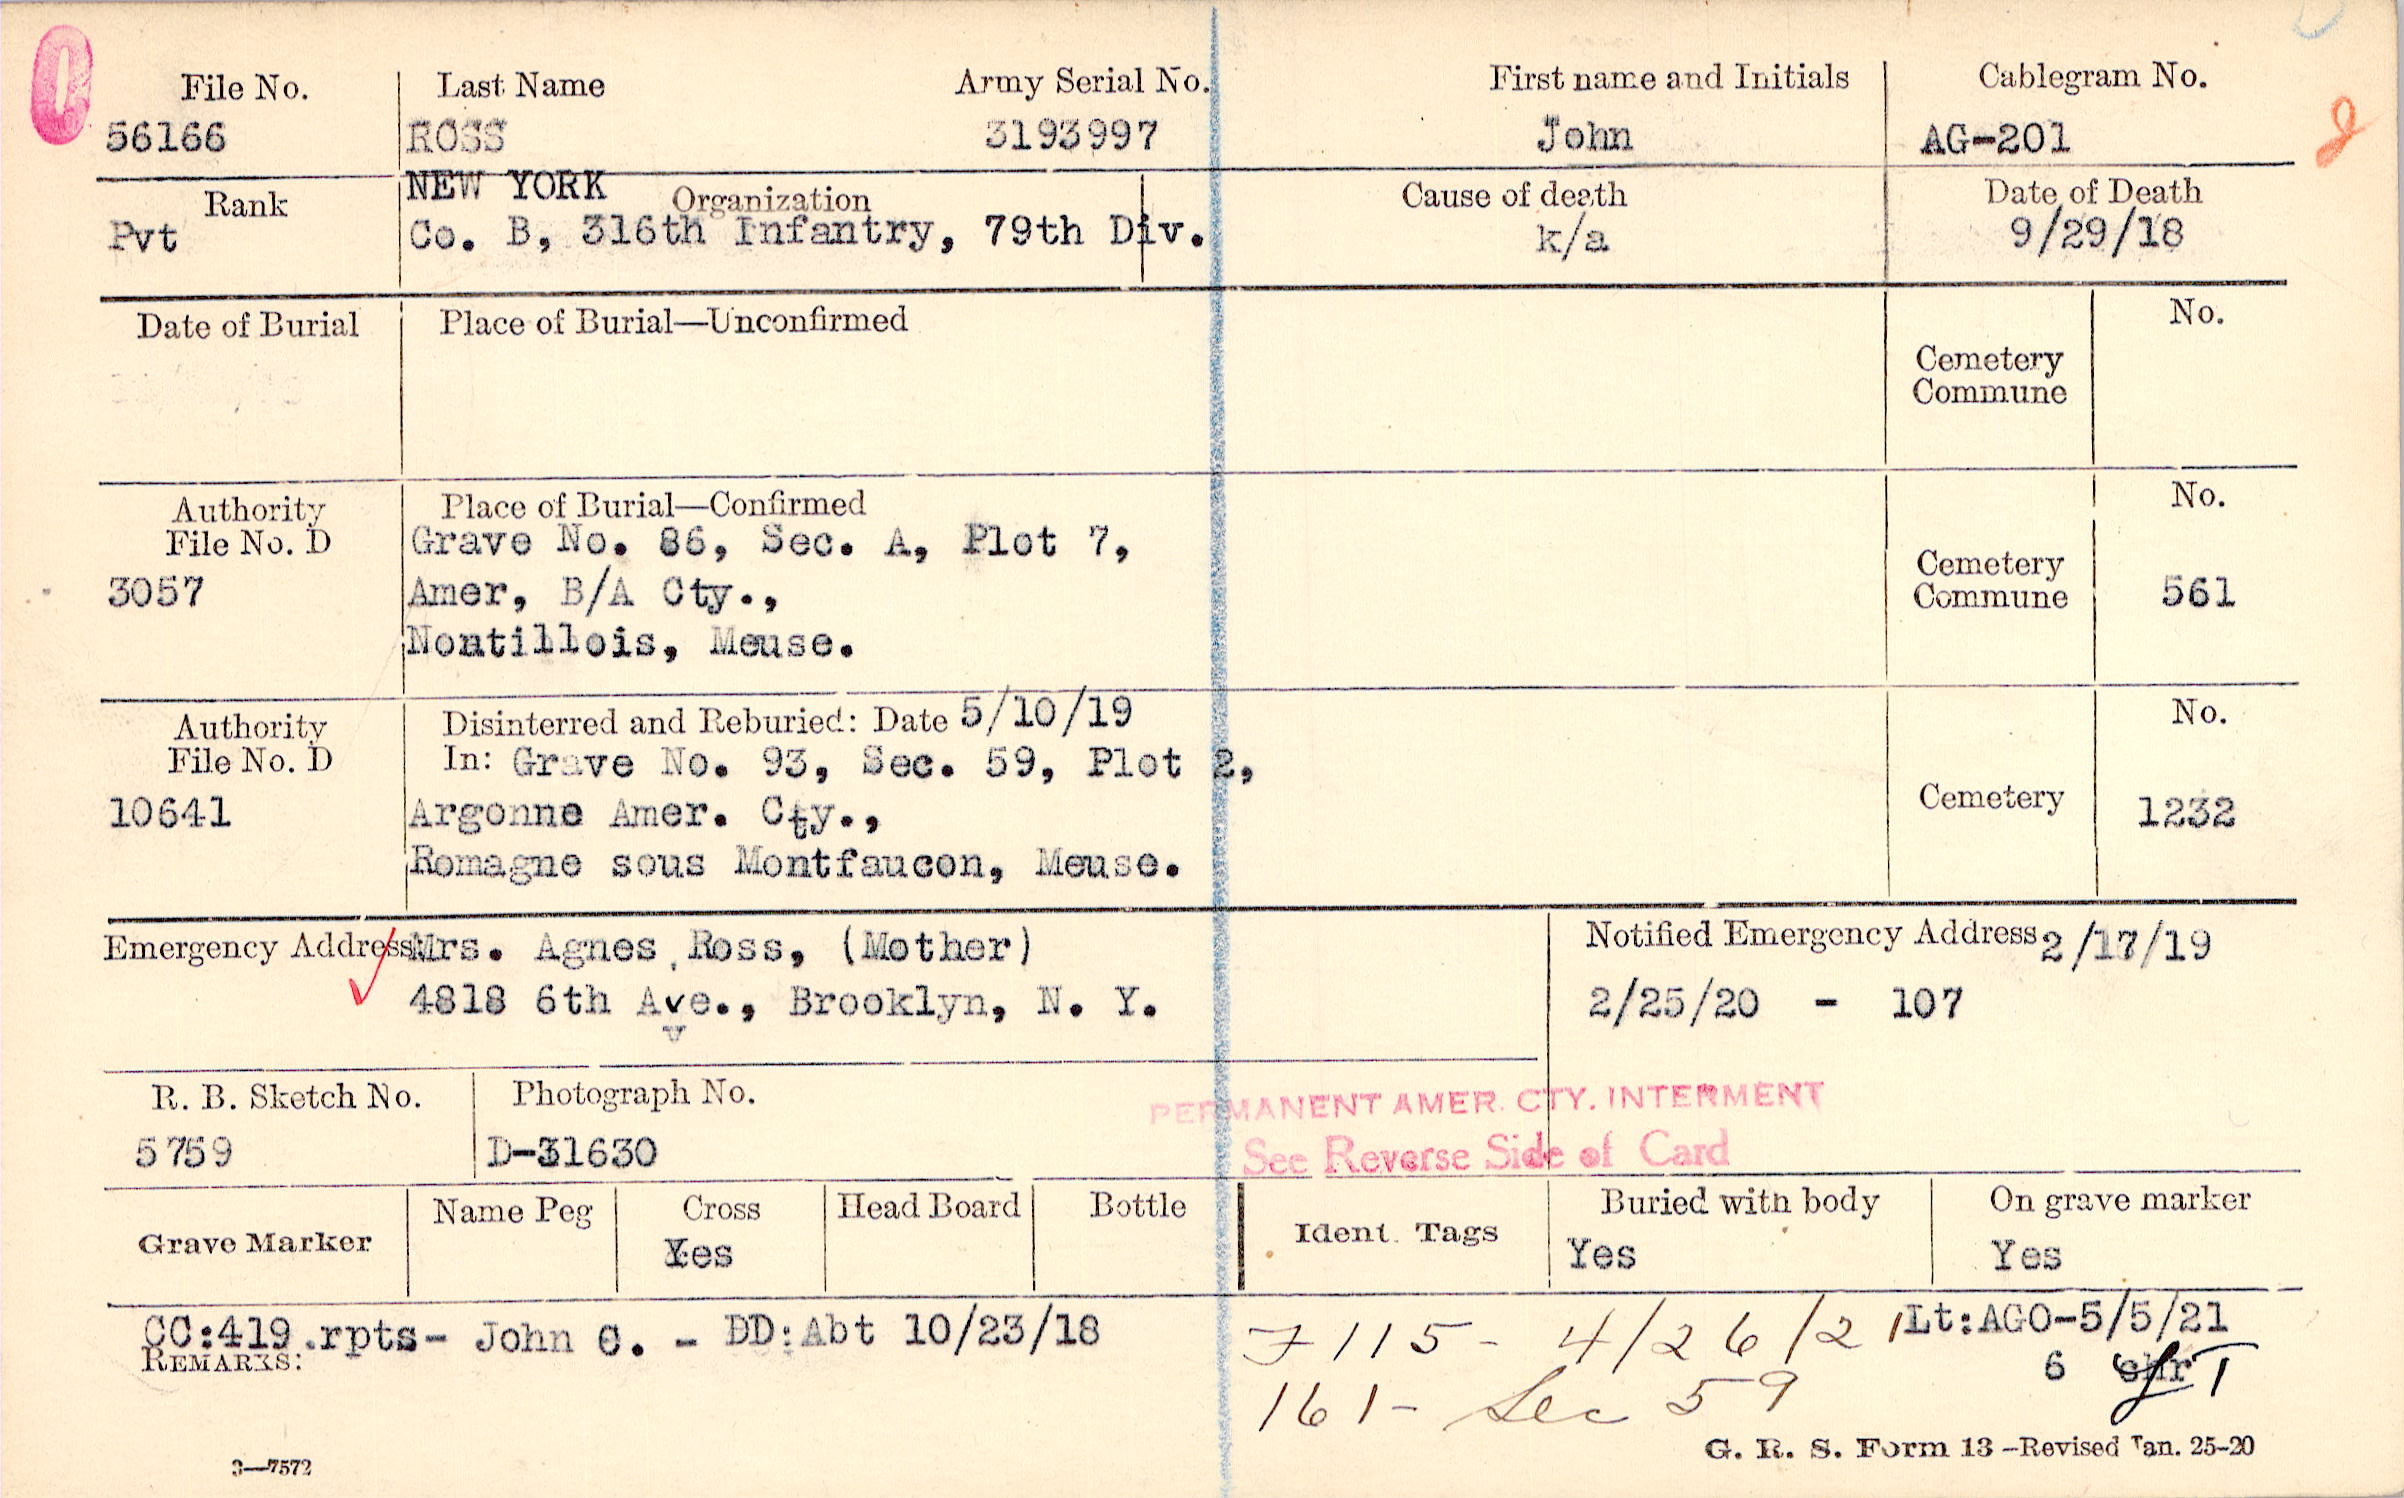 File No. Last Name Army Serial No. First name and Initials Cablegram No.
56166 ROSS 3193997 John AG-201
Rank NEW YORK Organization Cause of death Date of Death
Pvt Co. B, 316th Infantry, 79th Div. k/a 9/29/18
Date of Burial Place of Burial—Unconfirmed No.
Cemetery
Commune
Authority Place of Burial—Confirmed No.
File No. D Grave No. 86, Sec. A, Plot 7,
3057 Amer, B/A Cty., Cemetery
Commune 561
Nontillois, Meuse.
Authority Disinterred and Reburied: Date 5/10/19 No.
File No. D In: Grave No. 93, Sec. 59, Plot 2,
10641 Argonne Amer. Cty., Cemetery 1232
Romagne sous Montfaucon, Meuse.
Emergency Address Mrs. Agnes Ross, (Mother) Notified Emergency Address 2/17/19
4818 6th Ave., Brooklyn, N. Y. 2/25/20 - 107
v
R. B. Sketch No. Photograph No. PERMANENT AMER. CTY. INTERMENT
5759 D-31630 See Reverse Side of Card
Grave Marker Name Peg Cross Head Board Bottle Ident. Tags Buried with body On grave marker
Yes Yes Yes
CC:419.rpts- John C. - DD:Abt 10/23/18 115- 4/26/21 Lt:AGO-5/5/21
REMARKS: 6
161- Sec 59
3—7572 G. R. S. Form 13 –Revised Jan. 25–20